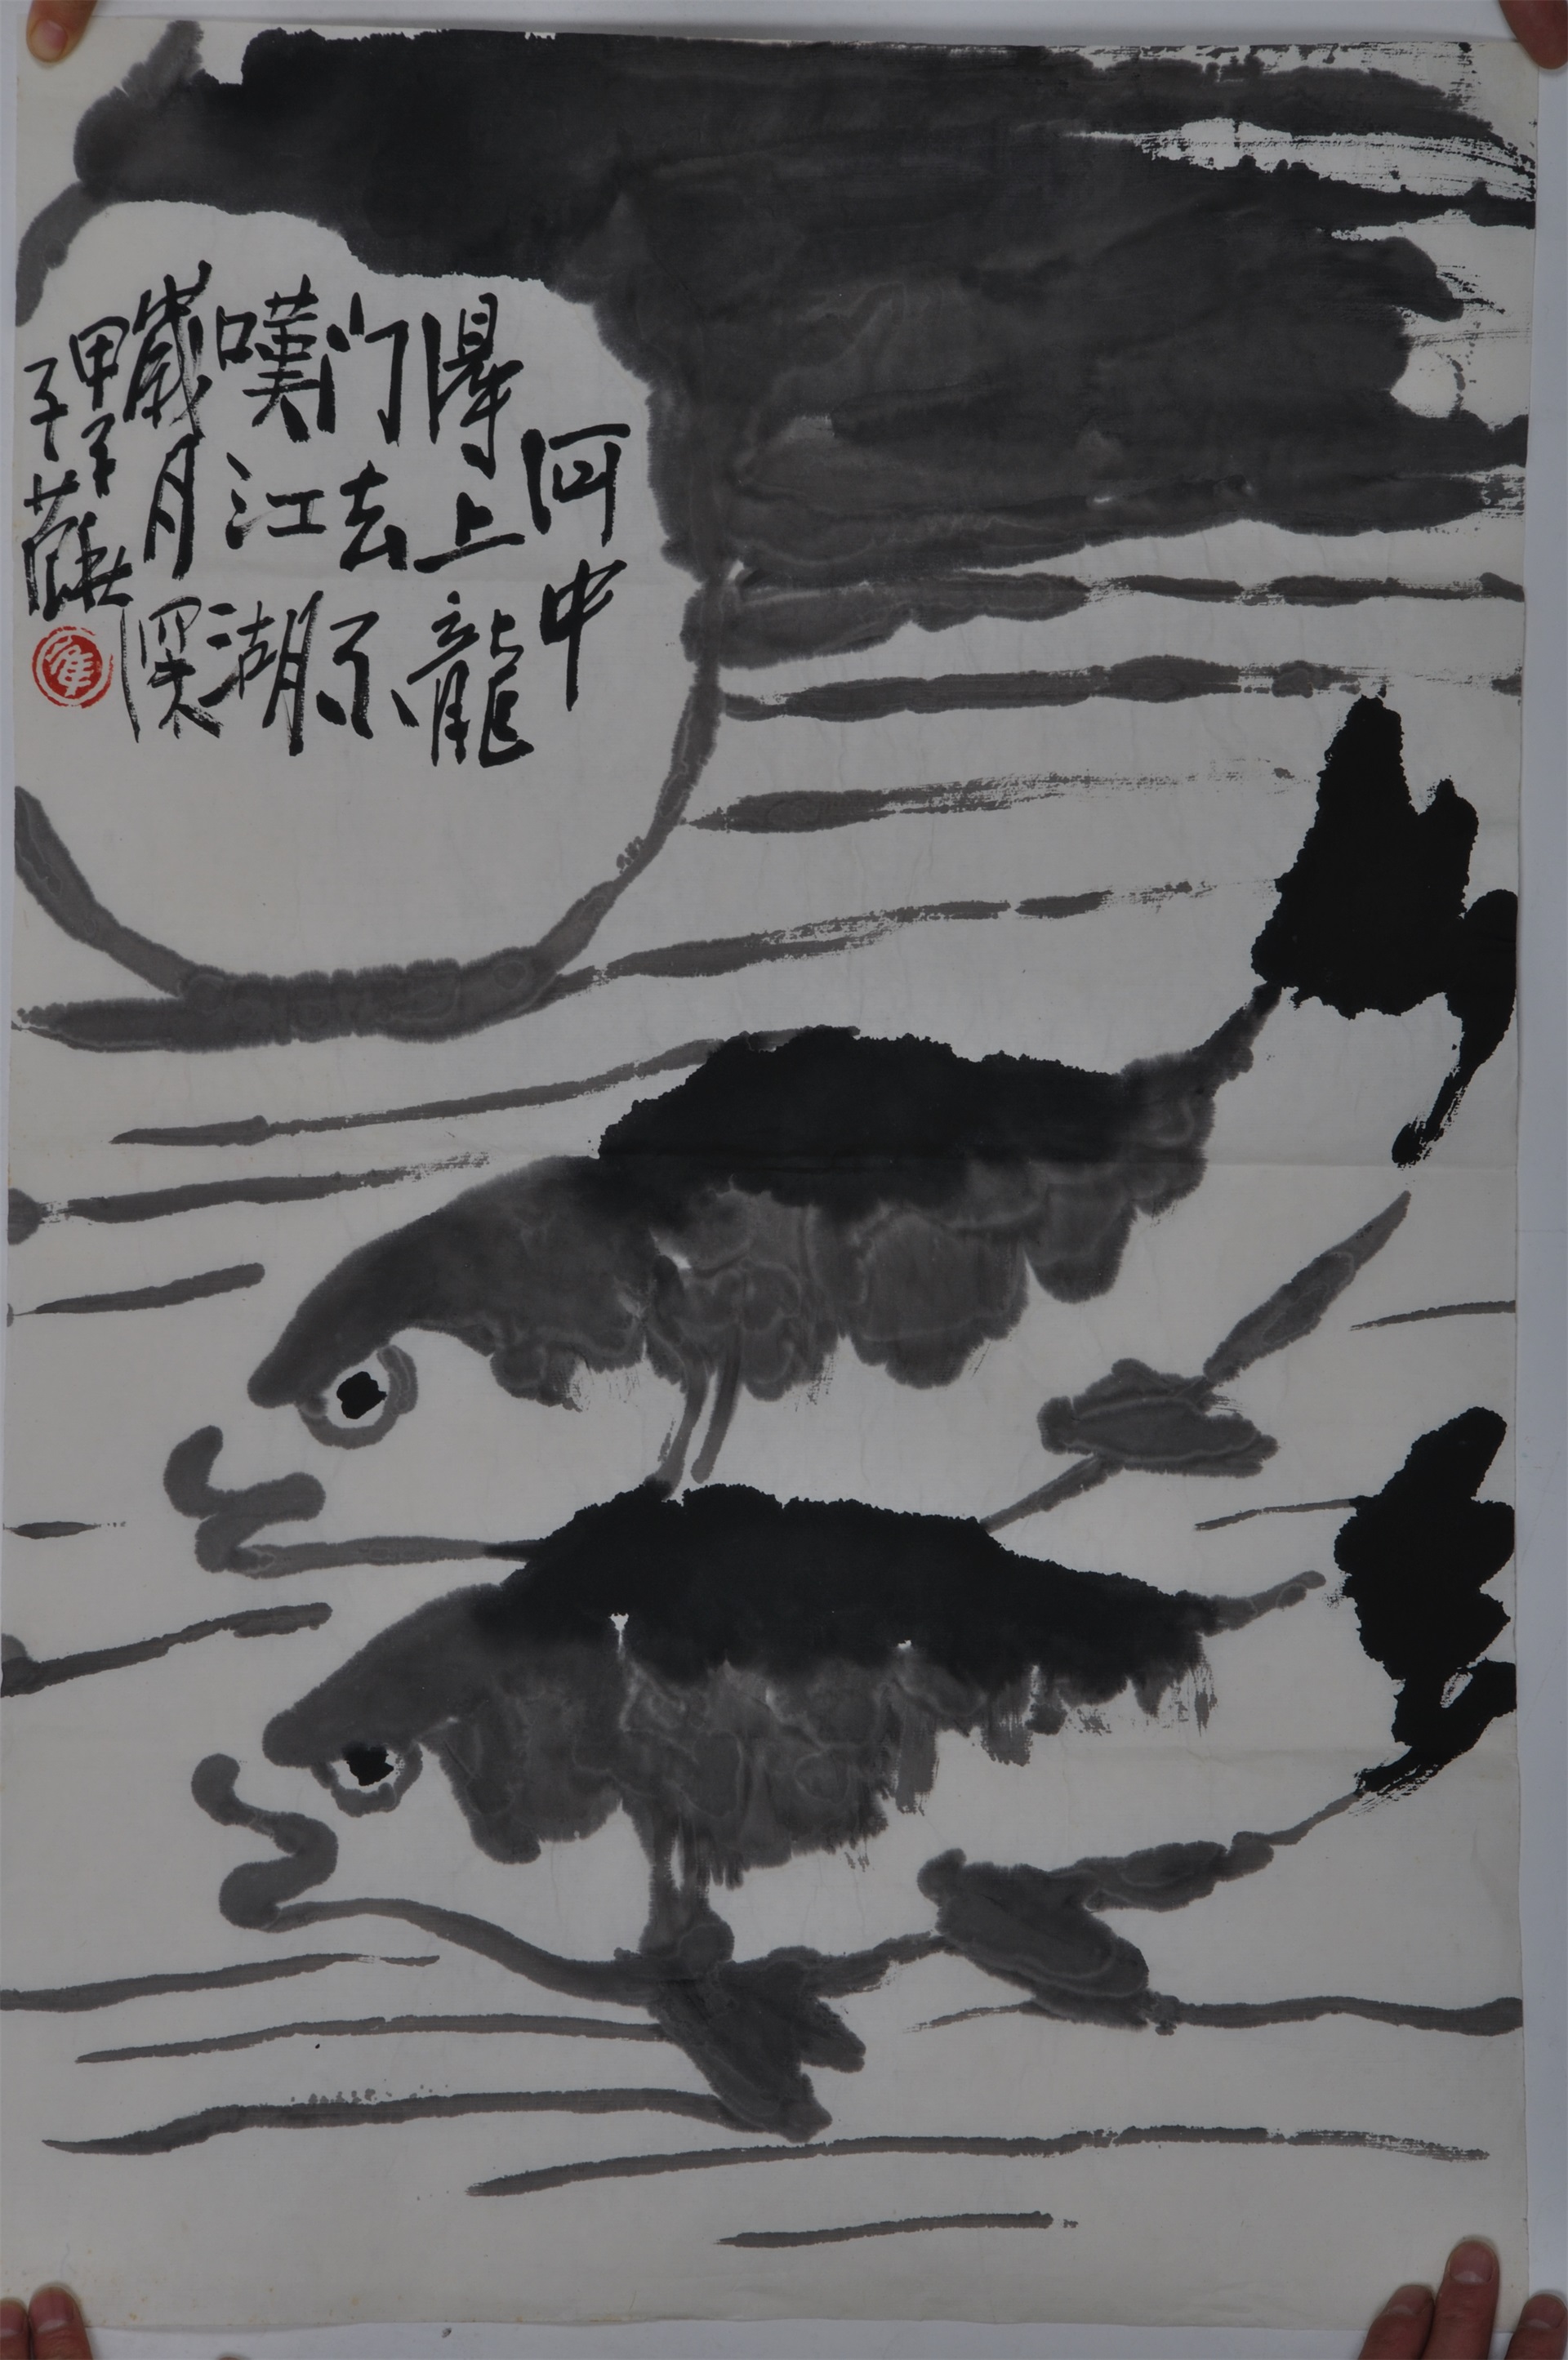 河中
得上龍
门去不
嘆江湖
歲月深
甲子
子